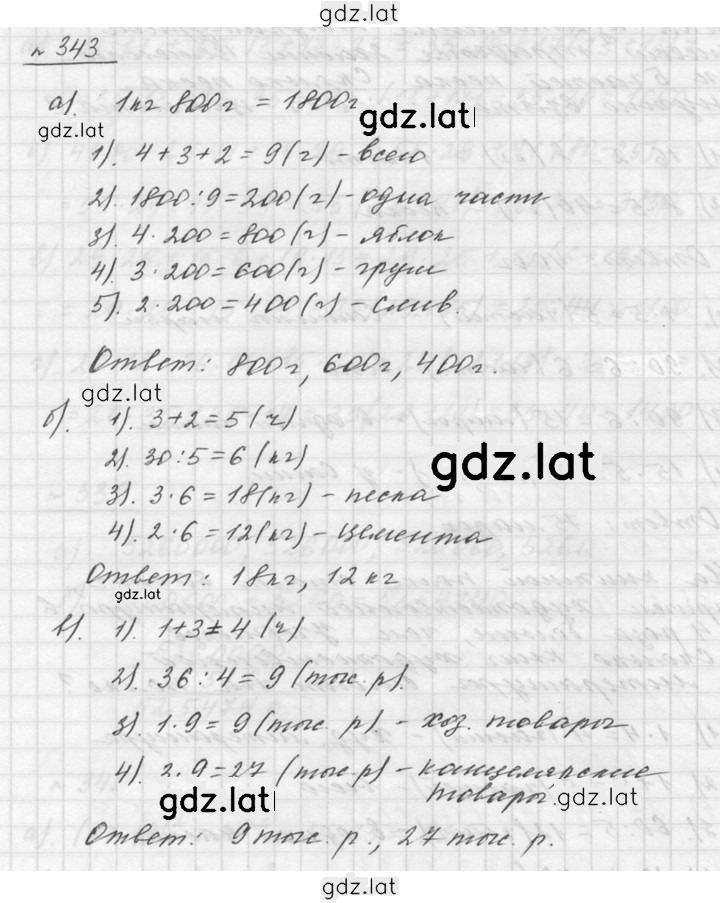 gdz.lat
№ 343
а). 1кг 800г = 1800г
gdz.lat gdz.lat
1). 4+3+2=9(г) - всего
2). 1800:9=200(г) - одна часть
3). 4·200=800(г) - яблок
4). 3·200=600(г) - груш
5). 2·200=400(г) - слив.
Ответ: 800г, 600г, 400г.
gdz.lat
б). 1). 3+2=5(ч)
2). 30:5=6(кг)
gdz.lat
3). 3·6=18(кг) - песка
4). 2·6=12(кг) - цемента
Ответ: 18кг, 12кг
gdz.lat
в). 1). 1+3=4(ч)
2). 36:4=9(тыс.р).
3). 1·9=9(тыс.р). - хоз. товары
4). 2·9=27(тыс.р) - канцелярские
товары.
gdz.lat gdz.lat
Ответ: 9тыс.р., 27тыс.р.
gdz.lat